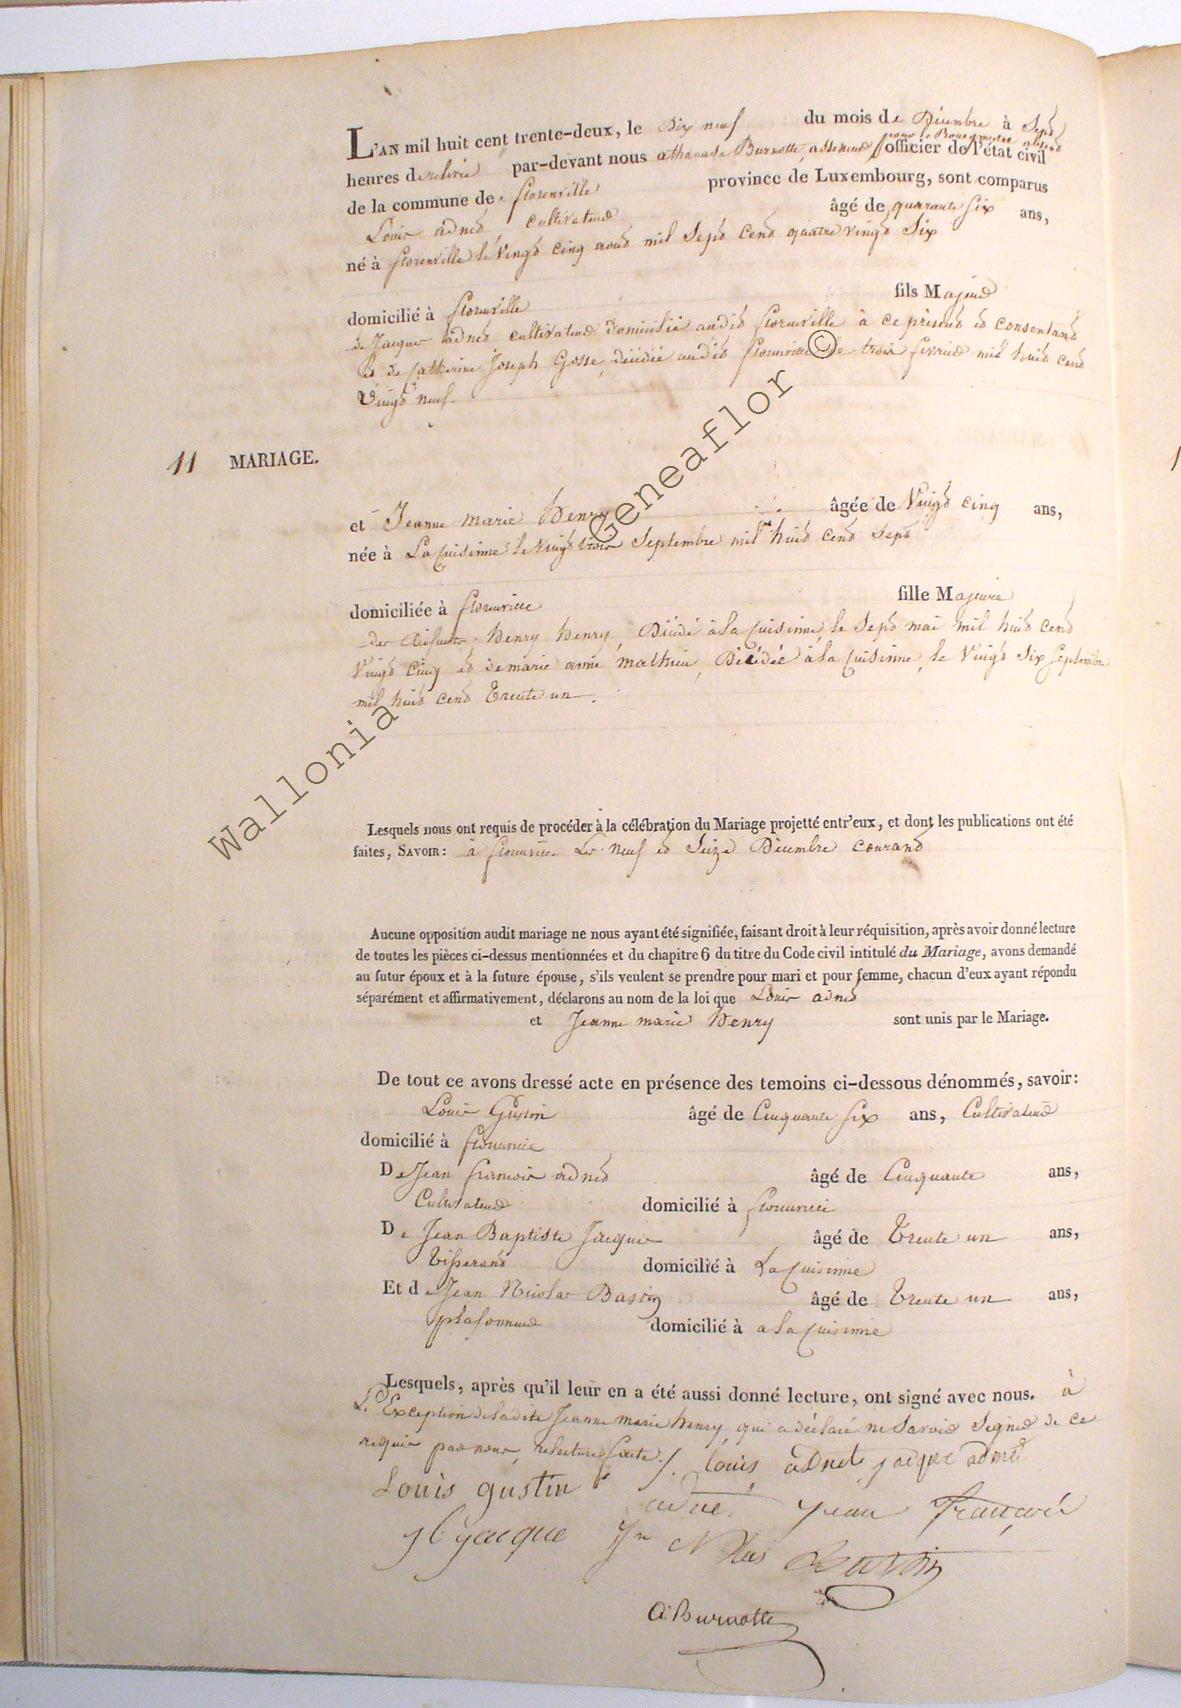 L'AN mil huit cent trente-deux, le Dix neuf du mois de Décembre à Sept
heures de relevée par-devant nous athanase Burnotte, assesseur pour le Bourgmestre absent officier de l'état civil
de la commune de florenville province de Luxembourg, sont comparus
Louis adnet, cultivateur âgé de quarante six ans,
né à florenville le Vingt cinq aout mil Sept cent quatre vingt Six
domicilié à florenville fils Majeur
de Jacque adnet cultivateur domicilié audit florenville à ce présent et consentant
et de Catherine Joseph Gosse, décédée audit florenville le trois fevrier mil huit cent
Vingt neuf.
11 MARIAGE.
et Jeanne marie Henry âgée de Vingt cinq ans,
née à La Cuisinne le Vingt trois Septembre mil huit cent Sept
domiciliée à florenville fille Majeure
des Defunts Henry Henry, Décédé à la Cuisinne, le Sept mai mil huit cent
Vingt Cinq et de marie anne mathieu, Décédée à la Cuisinne, le Vingt Six Septembre
mil huit cent Trente un.
Lesquels nous ont requis de procéder à la célébration du Mariage projetté entr'eux, et dont les publications ont été
faites, SAVOIR : à florenville Les neuf et Seize Décembre courant
Aucune opposition audit mariage ne nous ayant été signifiée, faisant droit à leur réquisition, après avoir donné lecture
de toutes les pièces ci-dessus mentionnées et du chapitre 6 du titre du Code civil intitulé du Mariage, avons demandé
au futur époux et à la future épouse, s'ils veulent se prendre pour mari et pour femme, chacun d'eux ayant répondu
séparément et affirmativement, déclarons au nom de la loi que Louis adnet
et Jeanne marie Henry sont unis par le Mariage.
De tout ce avons dressé acte en présence des temoins ci-dessous dénommés, savoir :
Louis Gustin âgé de Cinquante Six ans, Cultivateur
domicilié à florenville
De Jean francois adnet âgé de Cinquante ans,
Cultivateur domicilié à florenville
De Jean Baptiste Jacque âgé de Trente un ans,
Tisserand domicilié à La Cuisinne
Et de Jean Nicolas Bastin âgé de Trente un ans,
plafonneur domicilié à a la Cuisinne
Lesquels, après qu'il leur en a été aussi donné lecture, ont signé avec nous. à
L'Exception de ladite Jeanne marie henry qui a déclaré ne Savoir Signer de ce
requis par nous, relecture faite. Louis adnet jacque adnet
Louis gustin adnet jean françois
jb jacque Jn Nlas Bastin
A. Burnotte
Wallonia Geneaflor ©